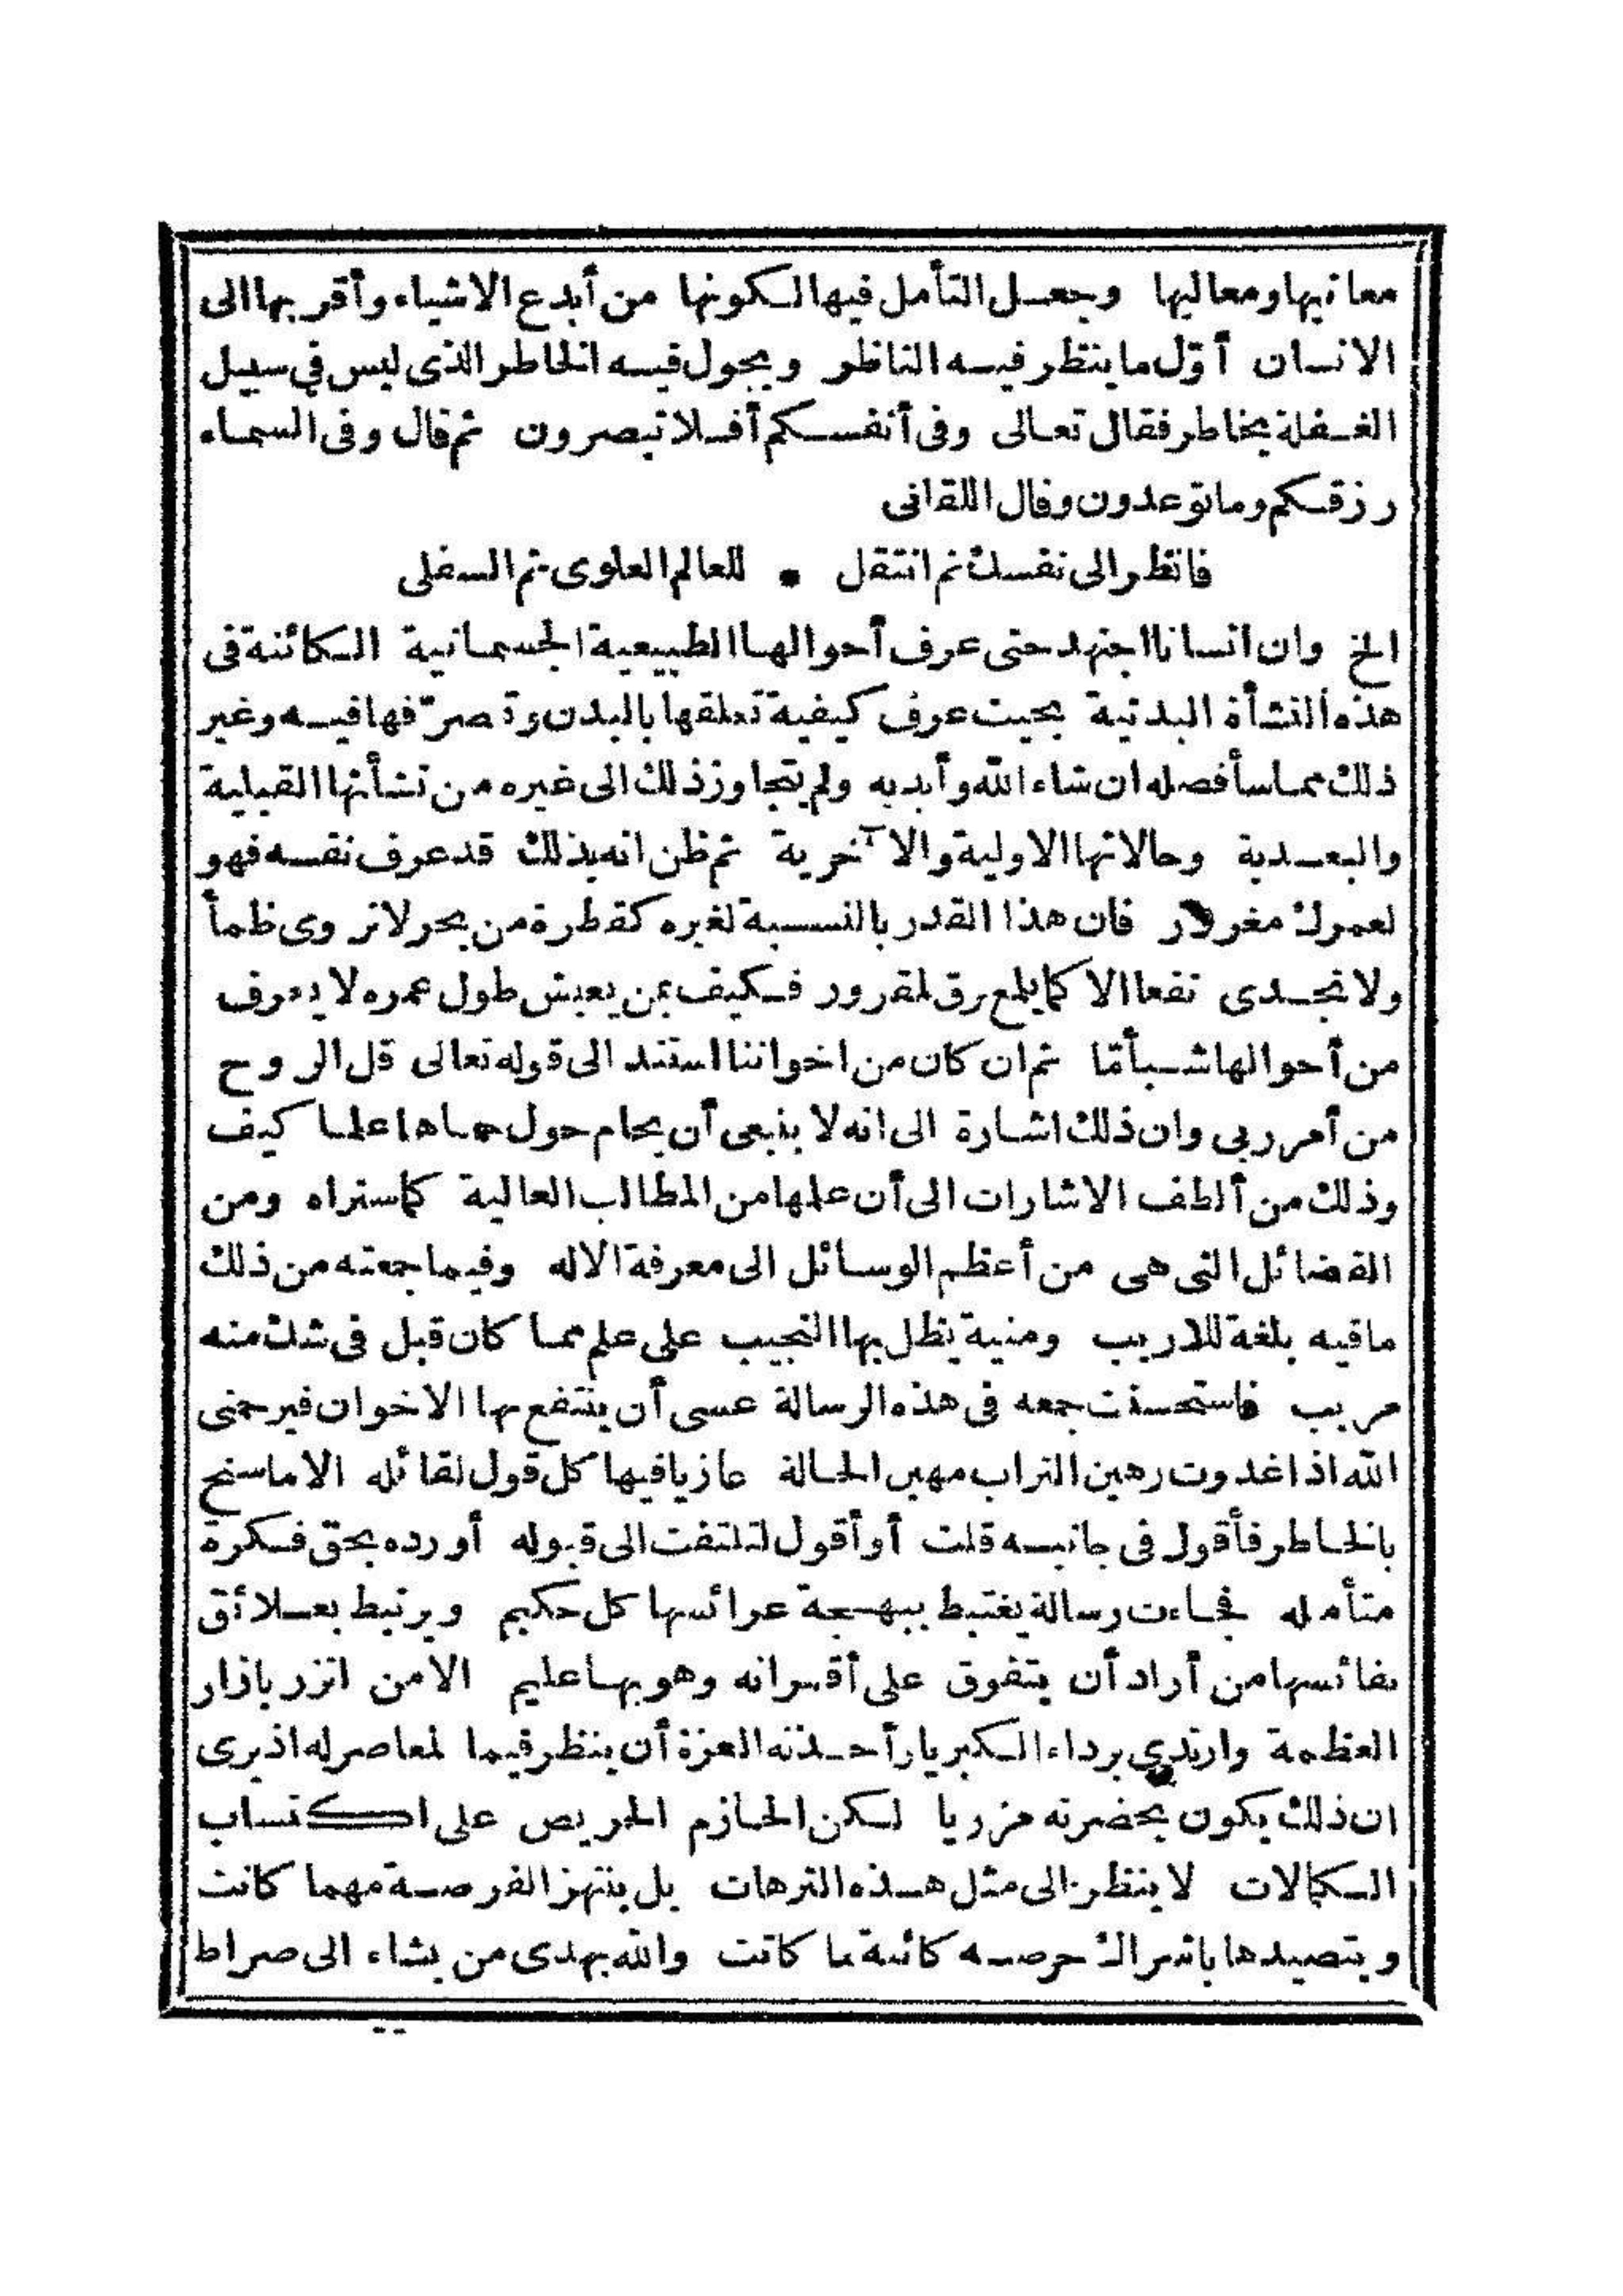 معانيها ومعاليها وجعل التأمل فيها لكونها من أبدع الاشياء وأقربها الى
الانسان أوّل ما ينظر فيه الناظر ويجول فيه الخاطر الذى ليس في سبيل
الغفلة بخاطر فقال تعالى وفى أنفسكم أفلا تبصرون ثم قال وفى السماء
رزقكم وما توعدون وقال اللقانى
فانظر الى نفسك ثم انتقل • للعالم العلوى ثم السفلى
الخ وان انسانا اجتهد حتى عرف أحوالها الطبيعية الجسمانية الكائنة فى
هذه النشأة البدنية بحيث عرف كيفية تعلقها بالبدن وتصرّفها فيه وغير
ذلك مما سأفصله ان شاء الله وأبديه ولم يتجاوز ذلك الى غيره من نشأتها القبلية
والبعدية وحالاتها الاولية والآخرية ثم ظن انه بذلك قد عرف نفسه فهو
لعمرك مغرور فان هذا القدر بالنسبة لغيره كقطرة من بحر لا تروى ظمأ
ولا تجدى نفعا الا كما يلمع برق لمقرور فكيف بمن يعيش طول عمره لا يعرف
من أحوالها شيأ مّا ثم ان كان من اخواننا استند الى قوله تعالى قل الروح
من أمر ربى وان ذلك اشارة الى انه لا ينبغى أن يحام حول حماها علما كيف
وذلك من ألطف الاشارات الى أن علمها من المطالب العالية كما ستراه ومن
الفضائل التى هى من أعظم الوسائل الى معرفة الاله وفيما جمعته من ذلك
ما فيه بلغة للاريب ومنية يظل بها النجيب على علم مما كان قبل فى شك منه
مريب فاستحسنت جمعه فى هذه الرسالة عسى أن ينتفع بها الاخوان فيرحمنى
الله اذا غدوت رهين التراب مهين الحالة عازيا فيها كل قول لقائله الا ما سنح
بالخاطر فأقول فى جانبه قلت أو أقول لتلتفت الى قبوله أو رده بحق فكرة
متأمله فجاءت رسالة يغتبط ببهجة عرائسها كل حكيم ويرتبط بعلائق
نفائسها من أراد أن يتفوق على أقرانه وهو بها عليم الا من اتزر بازار
العظمة وارتدى برداء الكبريا وأخذته العزة أن ينظر فيما لمعاصر له اذ يرى
ان ذلك يكون بحضرته مزريا لكن الحازم الحريص على اكتساب
الكمالات لا ينظر الى مثل هذه الترهات بل ينتهز الفرصة مهما كانت
ويتصيدها باشراك حرصه كائنة ما كانت والله يهدى من يشاء الى صراط